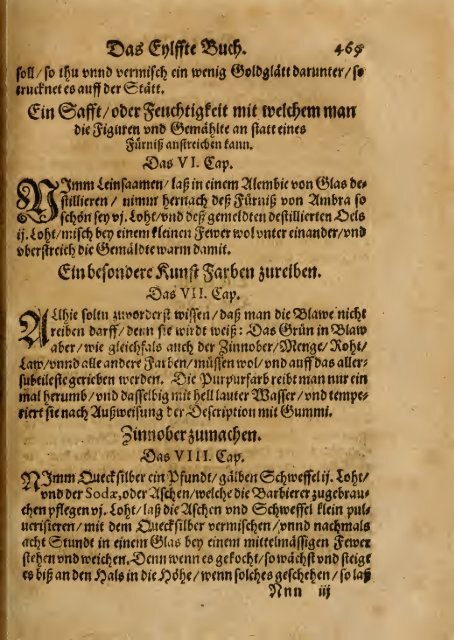 Das Eylffte Buch. 469
soll/ so thu vnnd vermisch ein wenig Goldglätt darunter/ so
trucknet es auff der Stätt.
Ein Safft/ oder Feuchtigkeit mit welchem man
die Figuren vnd Gemählte an statt eines
Fürniß anstreichen kann.
Das VI. Cap.
NImm Leinsaamen/ laß in einem Alembic von Glas de-
stillieren/ nimm hernach deß Fürniß von Ambra so
schön sey vj. Loht/ vnd deß gemeldten destillierten Oels
ij. Loht/ misch bey einem kleinen Fewer wol unter einander/ vnd
vberstreich die Gemäldte warm damit.
Ein besondere Kunst Farben zureiben.
Das VII. Cap.
ALlhie soltu zuvorderst wissen/ daß man die Blawe nicht
reiben darff/ denn sie wirdt weiß: Das Grün in Blaw
aber/ wie gleichfals auch der Zinnober/ Menge/ Roht/
Law/ vnnd alle andere Farben/ müssen wol/ vnd auff das aller-
subtileste gerieben werden. Die Purpurfarb reibt man nur ein
mal herumb/ vnd dasselbig mit hell lauter Wasser/ vnd tempe-
riert sie nach Außweisung der Description mit Gummi.
Zinnober zumachen.
Das VIII. Cap.
NImm Quecksilber ein Pfundt/ gälben Schweffel ij. Loht/
vnd der Sodæ, oder Aschen/ welche die Barbierer zugebrau-
chen pflegen vj. Loht/ laß die Aschen vnd Schweffel klein pul-
uerisieren/ mit dem Quecksilber vermischen/ vnnd nachmals
acht Stundt in einem Glas bey einem mittelmässigen Fewer
stehen vnd weichen. Denn wenn es gekocht/ so wächst vnd steigt
es biß an den Hals in die Höhe/ wenn solches geschehen/ so laß
Nnn iij